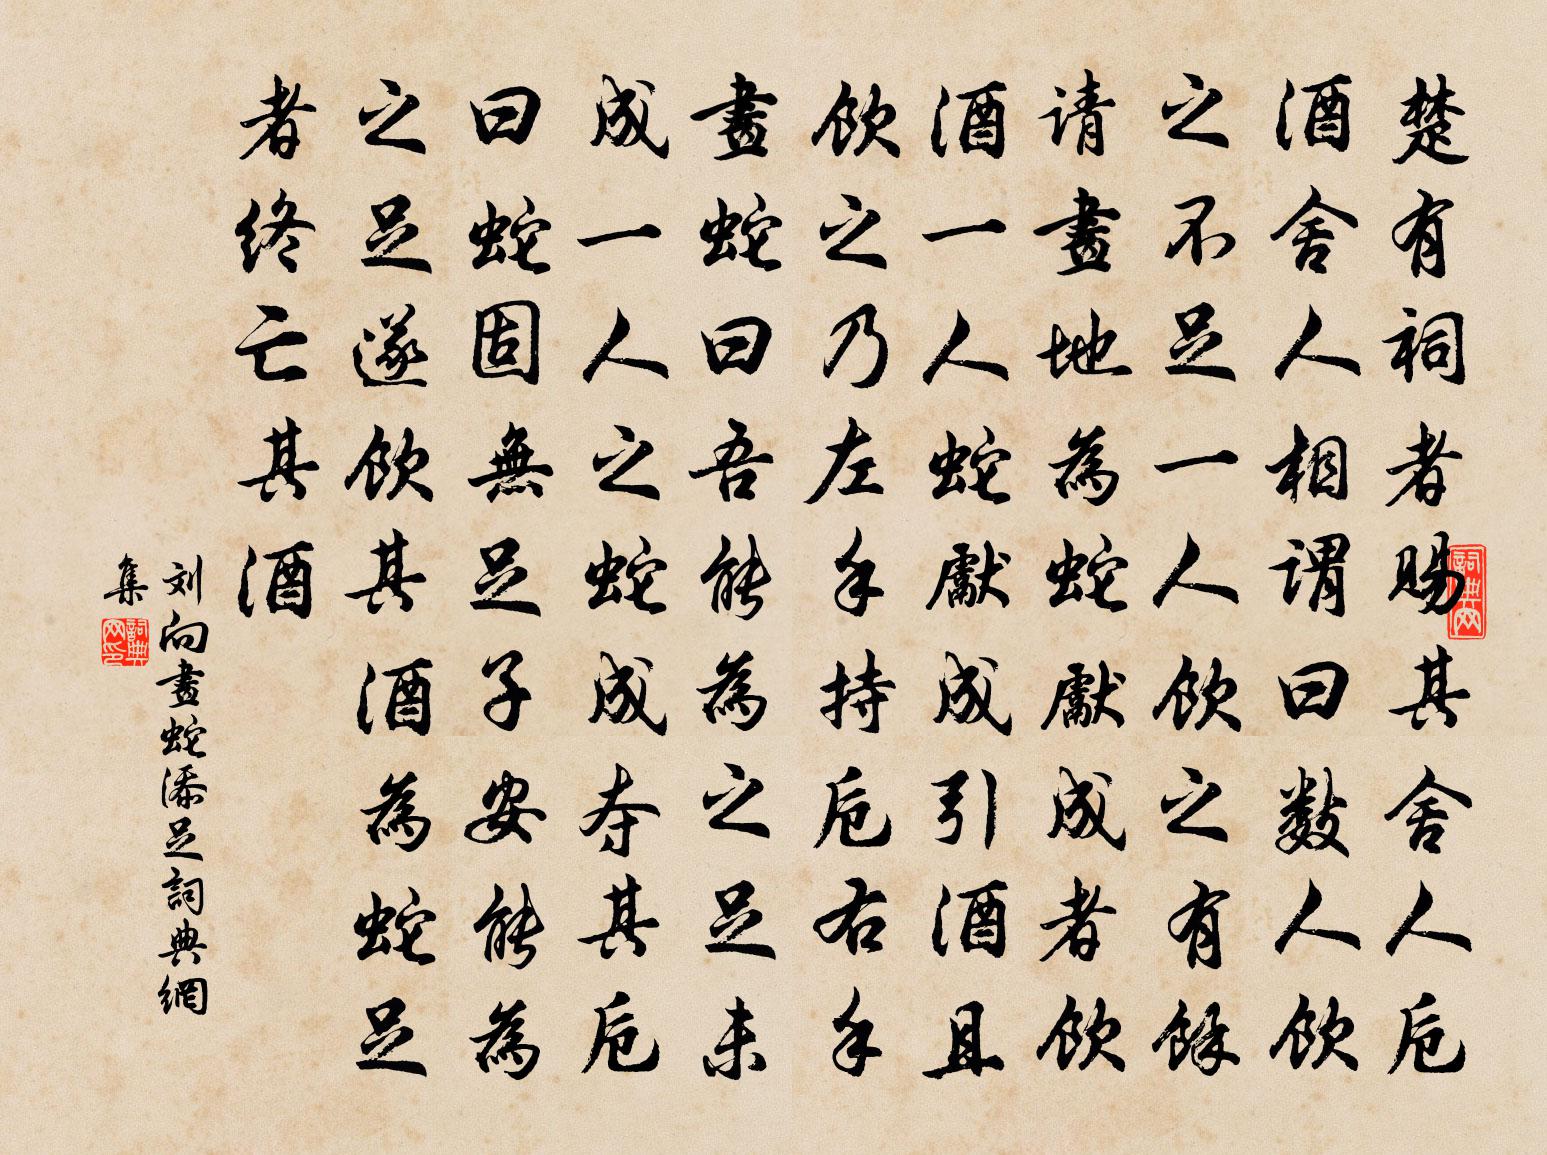 楚有祠者賜其舍人卮
酒舍人相謂曰数人飲
之不足一人飲之有餘
请畫地為蛇獻成者飲
酒一人蛇獻成引酒且
飲之乃左手持卮右手
畫蛇曰吾能為之足未
成一人之蛇成夺其卮
曰蛇固無足子安能為
之足遂飲其酒為蛇足
者终亡其酒
刘向畫蛇添足詞典網
集
詞典网
詞典网印